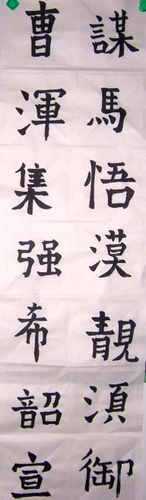 謀馬悟漠靚湏御
曹渾集强希韶宣